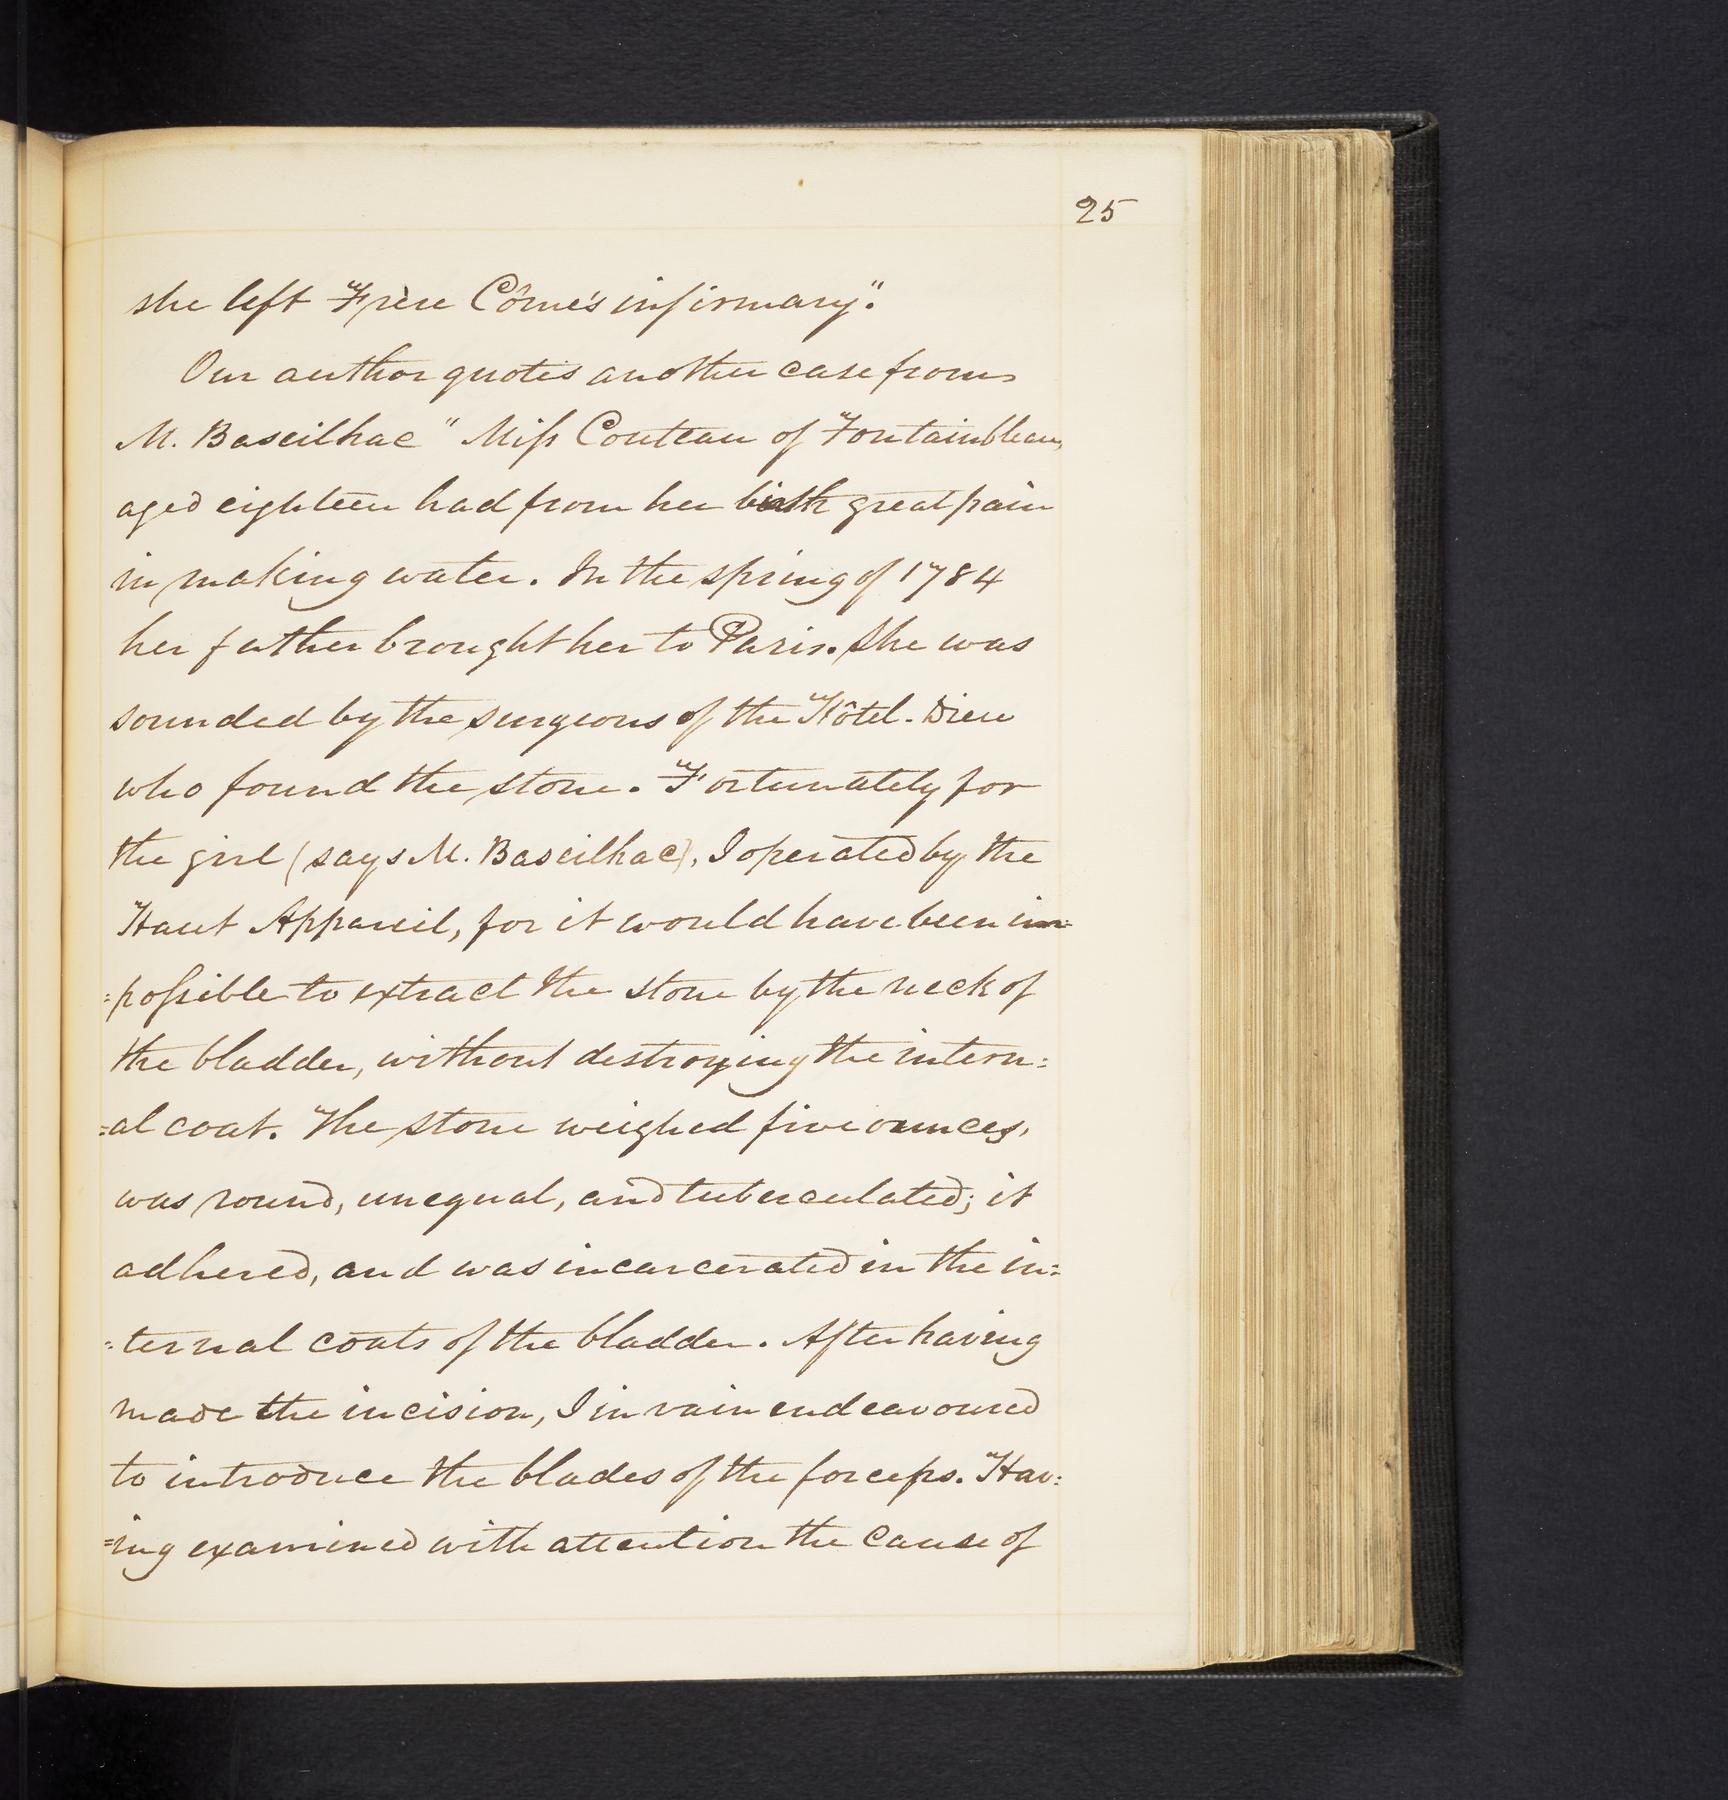 25
she left Frère Côme's infirmary".
Our author quotes another case from
M. Baseilhac "Miſs Couteau of Fontainbleau,
aged eighteen had from her birth great pain
in making water. In the spring of 1784
her father brought her to Paris. She was
sounded by the surgeons of the Hôtel-Dieu
who found the stone. Fortunately for
the girl (says M. Baseilhac), I operated by the
Haut Appareil, for it would have been im=
=poſsible to extract the stone by the neck of
the bladder, without destroying the intern=
=al coat. The stone weighed five ounces,
was round, unequal, and tuberculated; it
adhered, and was incarcerated in the in=
=ternal coats of the bladder. After having
made the incision, I in vain endeavoured
to introduce the blades of the forceps. Hav=
=ing examined with attention the cause of